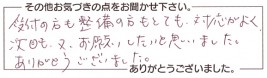 その他お気づきの点をお聞かせ下さい。
受付の方も整備の方もとても、対応がよく
次回も、又、お願いしたいと思いました。
ありがとうございました。
ありがとうございました。